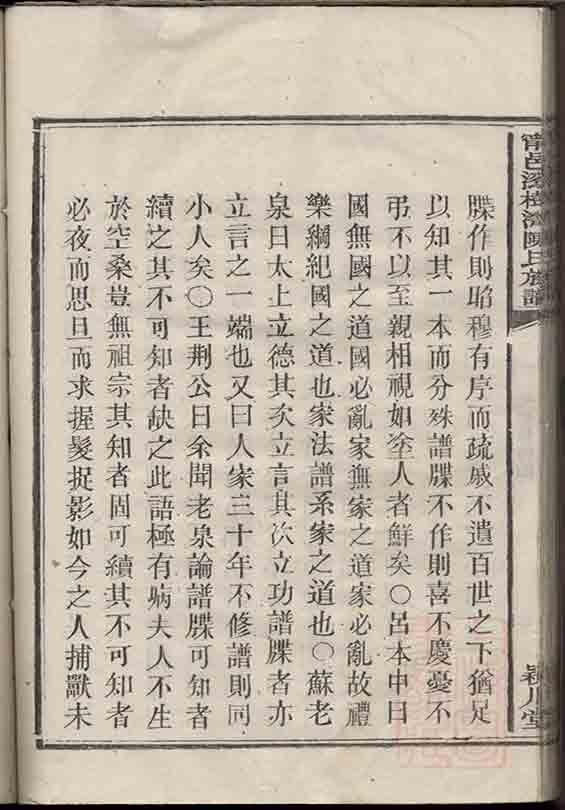 牒作則昭穆有序而疏戚不遺百世之下猶足
以知其一本而分殊譜牒不作則喜不慶憂不
弔不以至親相視如塗人者鮮矣○呂本中曰
國無國之道國必亂家無家之道家必亂故禮
樂綱紀國之道也家法譜系家之道也○蘇老
泉曰太上立德其次立言其次立功譜牒者亦
立言之一端也又曰人家三十年不修譜則同
小人矣○王荆公曰余聞老泉論譜牒可知者
續之其不可知者缺之此語極有病夫人不生
於空桑豈無祖宗其知者固可續其不可知者
必夜而思旦而求握髮捉影如今之人捕獸未
甯邑陳氏族譜
潁川堂